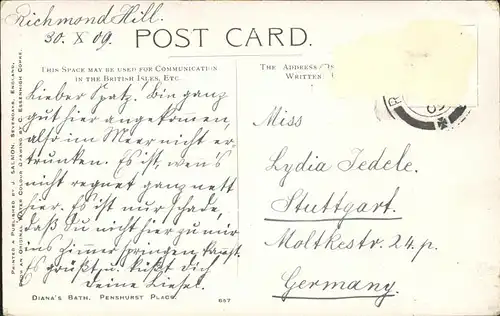 Richmond Hill.
30. X 09.
POST CARD.
THIS SPACE MAY BE USED FOR COMMUNICATION
IN THE BRITISH ISLES, ETC.
THE ADDRESS
WRITTEN
Lieber Spatz! Bin ganz
gut hier angekommen,
also im Meer nicht er-
trunken. Es ist, wen's
nicht regnet ganz nett
hier. Es ist nur schade,
daß Du nicht hier zu mir
ins Zimmer springen kannst.
Es grüßt u. küßt dich
deine Liesel.
Miss
Lydia Jedele.
Stuttgart.
Moltkestr. 24. p.
Germany.
PRINTED & PUBLISHED BY J. SALMON, SEVENOAKS, ENGLAND,
FROM AN ORIGINAL WATER COLOUR DRAWING BY C. ESSENHIGH CORKE.
DIANA'S BATH. PENSHURST PLACE. 687